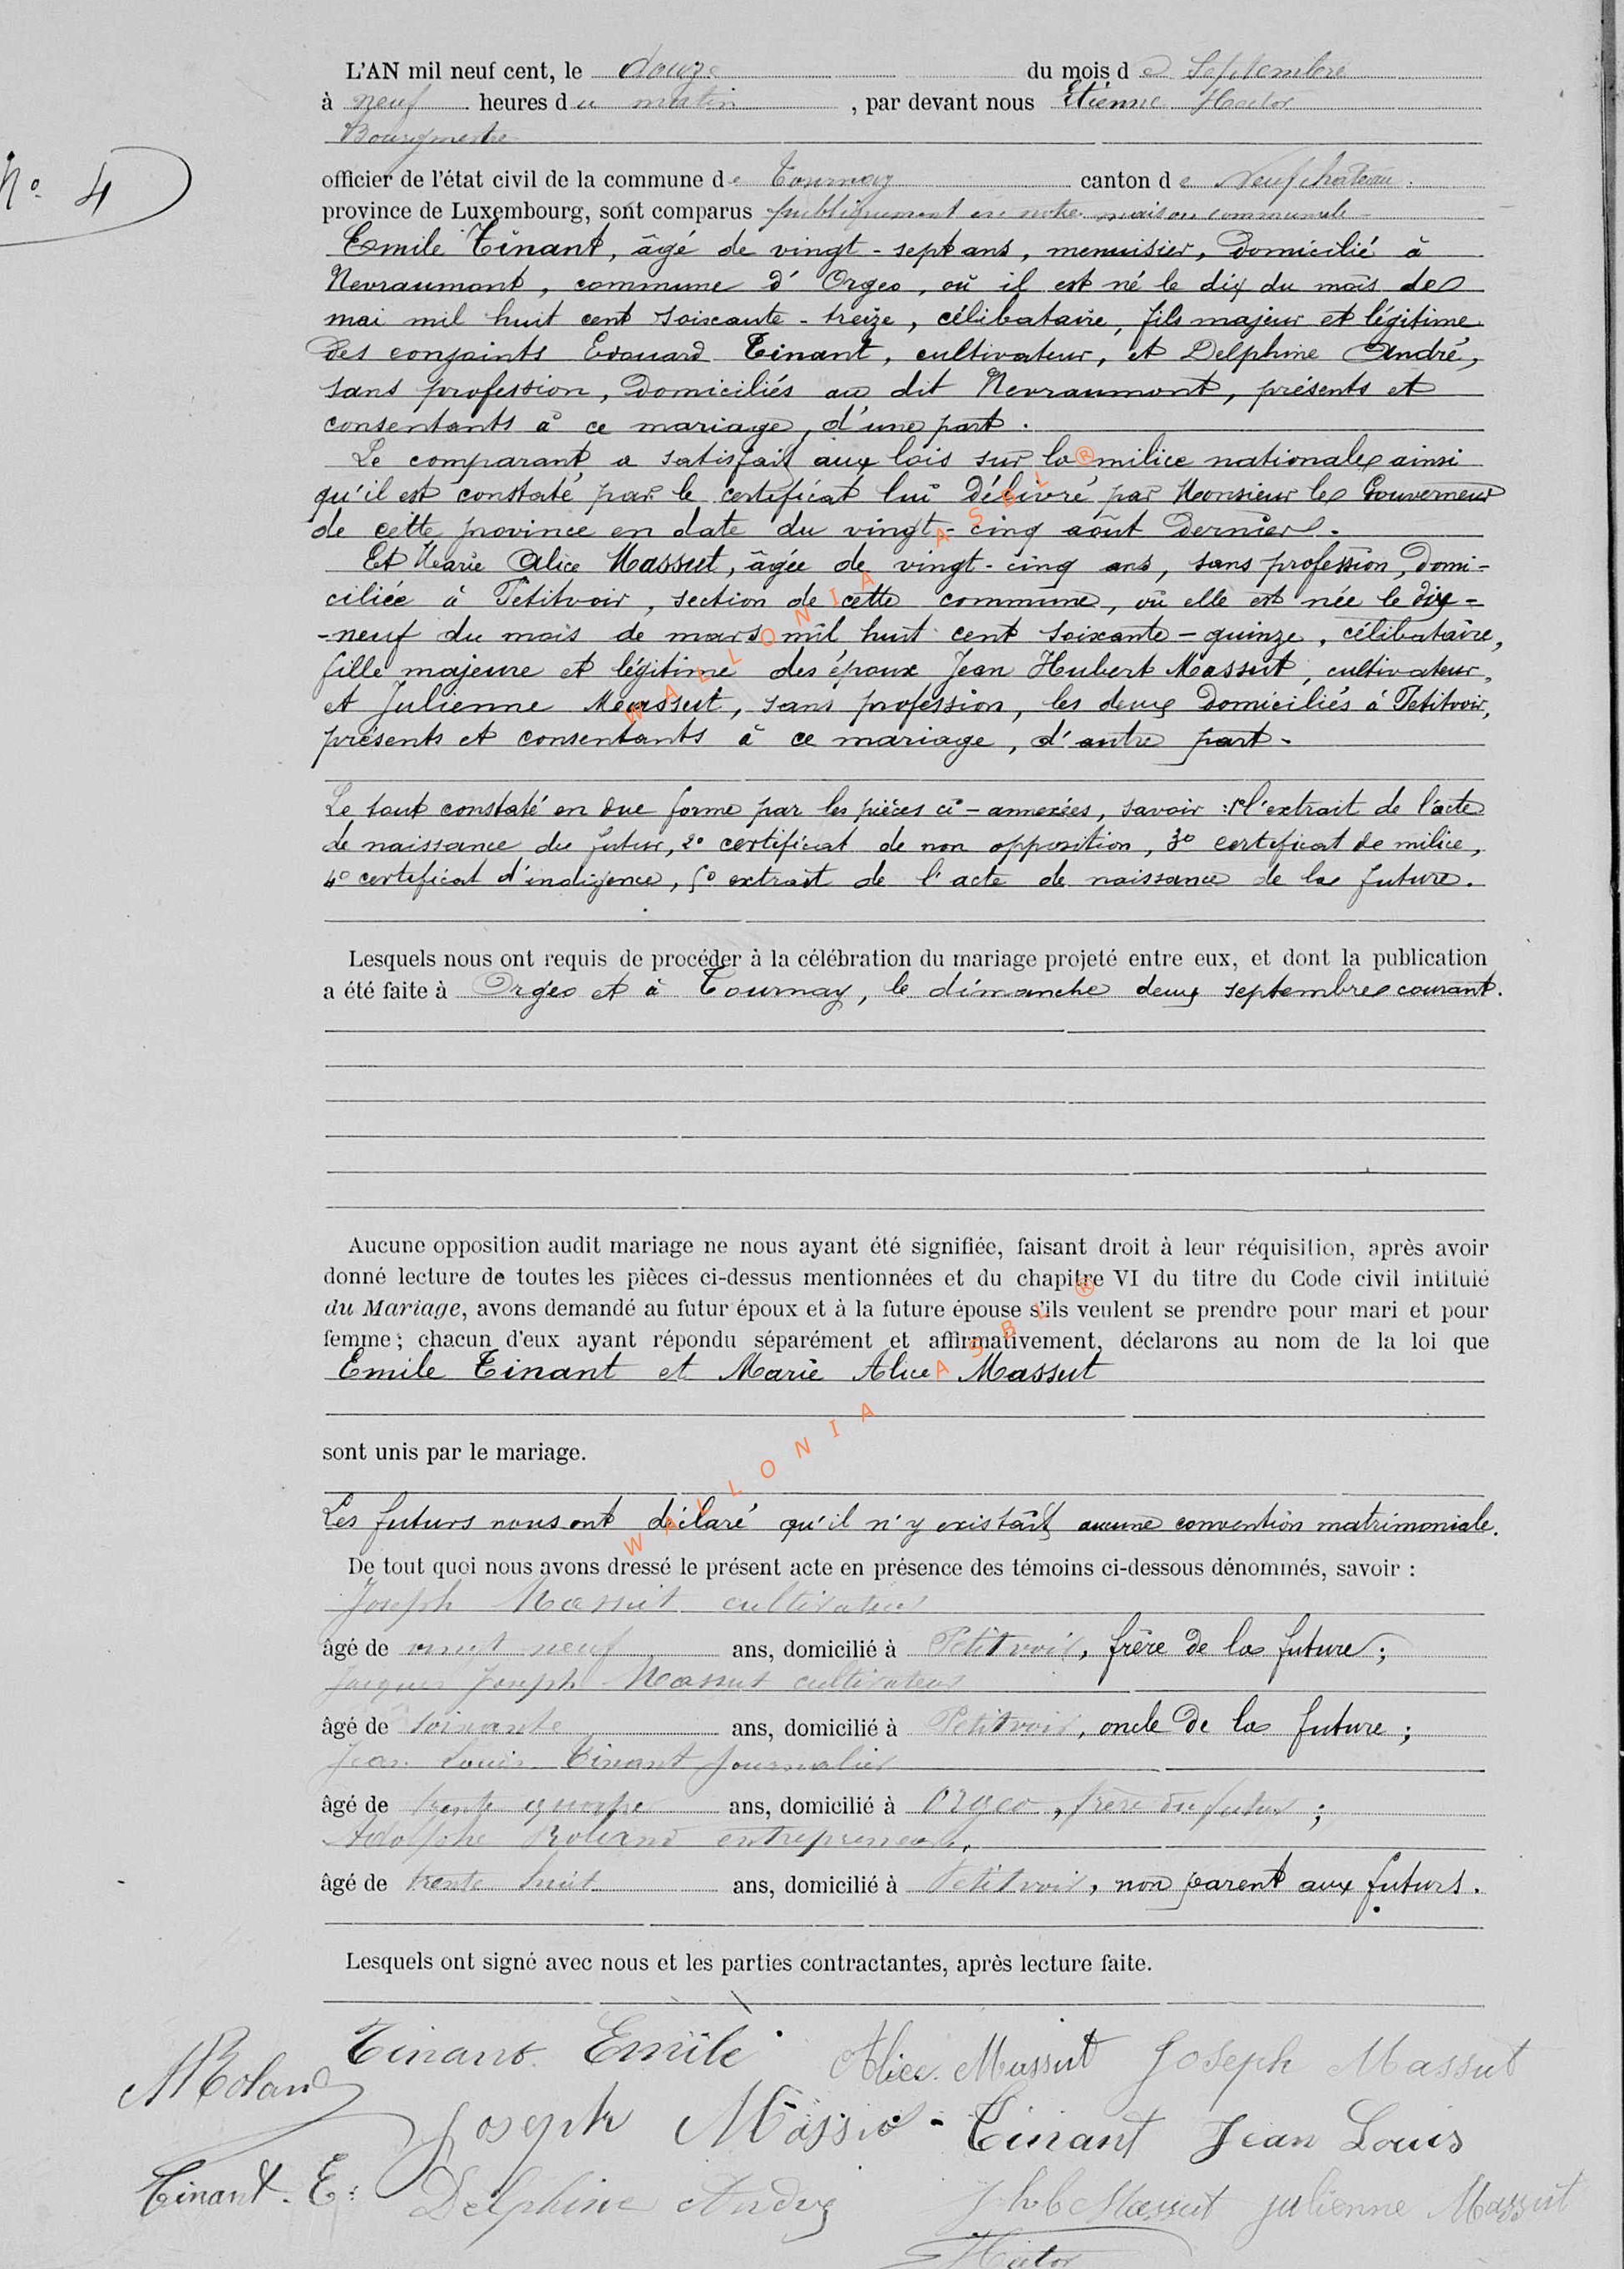 L'AN mil neuf cent, le douze du mois de Septembre
à neuf heures du matin, par devant nous Etienne Hector
Bourgmestre
N° 4
officier de l'état civil de la commune de Tournay canton de Neufchâteau.
province de Luxembourg, sont comparus publiquement en notre maison communale
Emile Tinant, âgé de vingt-sept ans, menuisier, domicilié à
Nevraumont, commune d'Orgeo, où il est né le dix du mois de
mai mil huit cent soixante-treize, célibataire, fils majeur et légitime
des conjoints Edouard Tinant, cultivateur, et Delphine André,
sans profession, domiciliés au dit Nevraumont, présents et
consentants à ce mariage, d'une part.
Le comparant a satisfait aux lois sur la milice nationale ainsi
qu'il est constaté par le certificat lui délivré par Monsieur le Gouverneur
de cette province en date du vingt-cinq août dernier.
Et Marie Alice Massut, âgée de vingt-cinq ans, sans profession, domi-
ciliée à Petitvoir, section de cette commune, où elle est née le dix-
-neuf du mois de mars mil huit cent soixante-quinze, célibataire,
fille majeure et légitime des époux Jean Hubert Massut, cultivateur,
et Julienne Massut, sans profession, les deux domiciliés à Petitvoir,
présents et consentants à ce mariage, d'autre part.
Le tout constaté en due forme par les pièces ci-annexées, savoir : 1° l'extrait de l'acte
de naissance du futur, 2° certificat de non opposition, 3° certificat de milice,
4° certificat d'indigence, 5° extrait de l'acte de naissance de la future.
Lesquels nous ont requis de procéder à la célébration du mariage projeté entre eux, et dont la publication
a été faite à Orgeo et à Tournay, le dimanche deux septembre courant.
Aucune opposition audit mariage ne nous ayant été signifiée, faisant droit à leur réquisition, après avoir
donné lecture de toutes les pièces ci-dessus mentionnées et du chapitre VI du titre du Code civil intitulé
du Mariage, avons demandé au futur époux et à la future épouse s'ils veulent se prendre pour mari et pour
femme ; chacun d'eux ayant répondu séparément et affirmativement, déclarons au nom de la loi que
Emile Tinant et Marie Alice Massut
sont unis par le mariage.
Les futurs nous ont déclaré qu'il n'y existait aucune convention matrimoniale.
De tout quoi nous avons dressé le présent acte en présence des témoins ci-dessous dénommés, savoir :
Joseph Massut cultivateur
âgé de vingt neuf ans, domicilié à Petitvoir, frère de la future ;
Jacques Joseph Massut cultivateur
âgé de soixante ans, domicilié à Petitvoir, oncle de la future ;
Jean Louis Tinant journalier
âgé de trente quatre ans, domicilié à Orgeo, frère du futur ;
Adolphe Roland entrepreneur,
âgé de trente huit ans, domicilié à Petitvoir, non parent aux futurs.
Lesquels ont signé avec nous et les parties contractantes, après lecture faite.
Tinant Emile Alice Massut Joseph Massut
ARoland
Joseph Massut - Tinant Jean Louis
Tinant. E: Delphine André J hub Massut julienne Massut
EHector
WALLONIA ASBL ®
WALLONIA ASBL ®